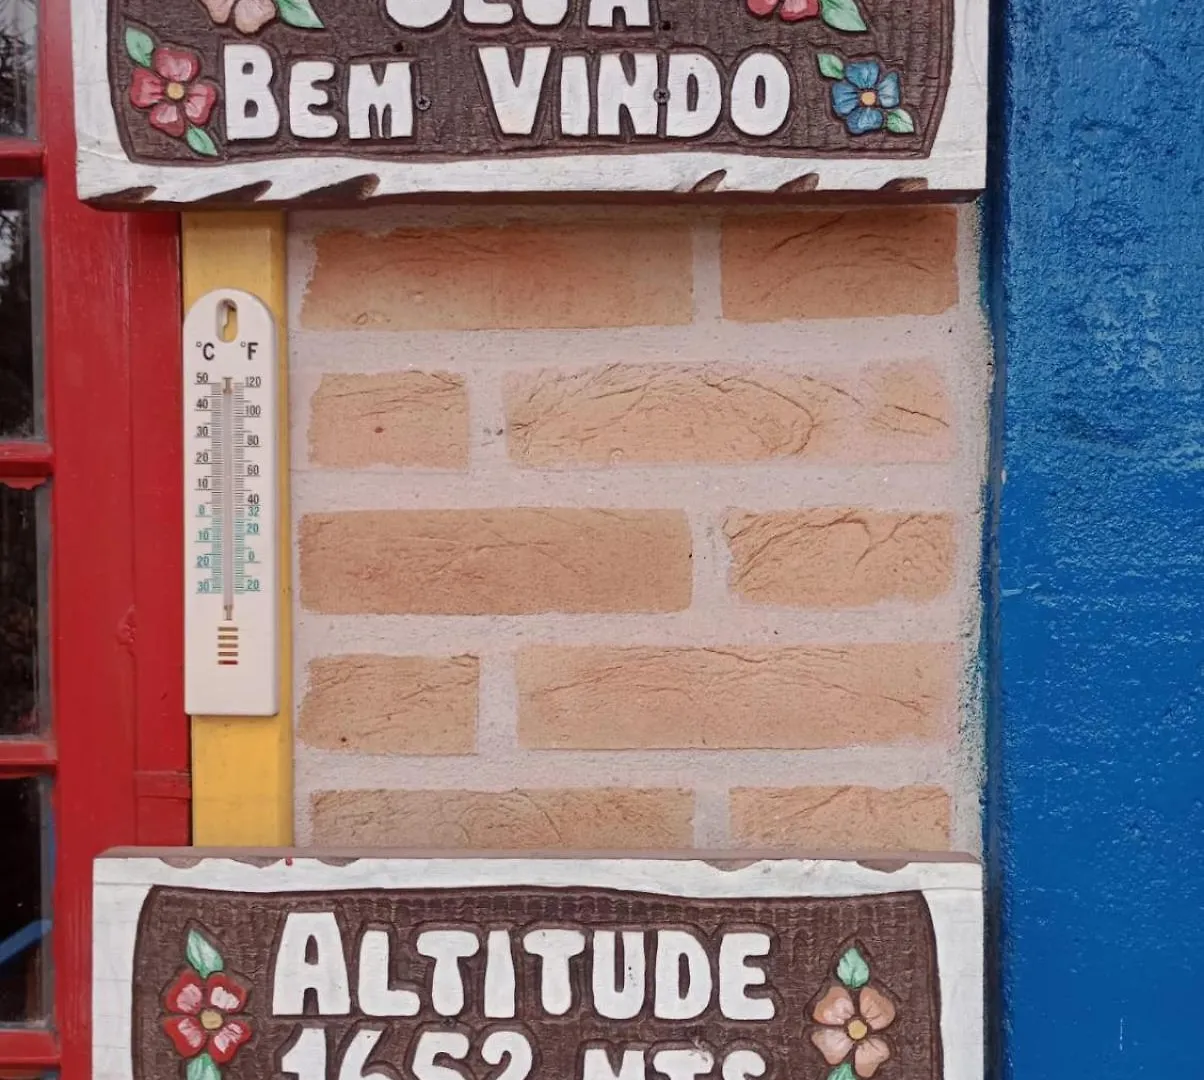 BEM VINDO
°C °F
50 120
40 100
30 80
20 60
10 40
0 32
10 20
20 0
30 20
ALTITUDE
1652 MTS